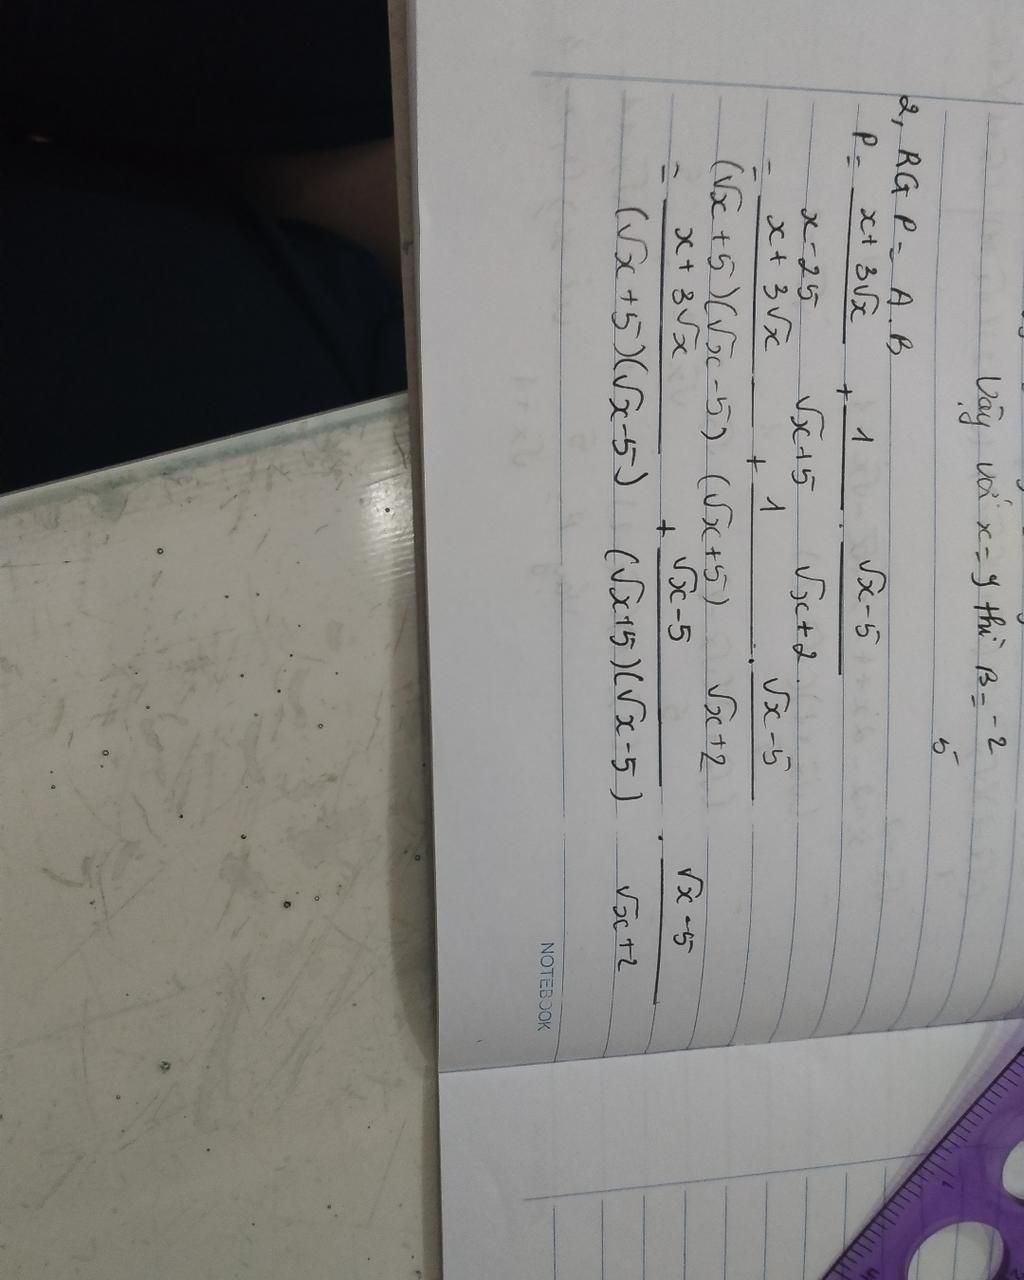 Vậy với x = 9 thì B = -2
5
2, RG P = A.B
P = x + 3√x + 1 . √x - 5
x - 25 √x + 5 √x + 2
= x + 3√x + 1 . √x - 5
(√x + 5)(√x - 5) (√x + 5) √x + 2
= x + 3√x + √x - 5 . √x - 5
(√x + 5)(√x - 5) (√x + 5)(√x - 5) √x + 2
NOTEBOOK